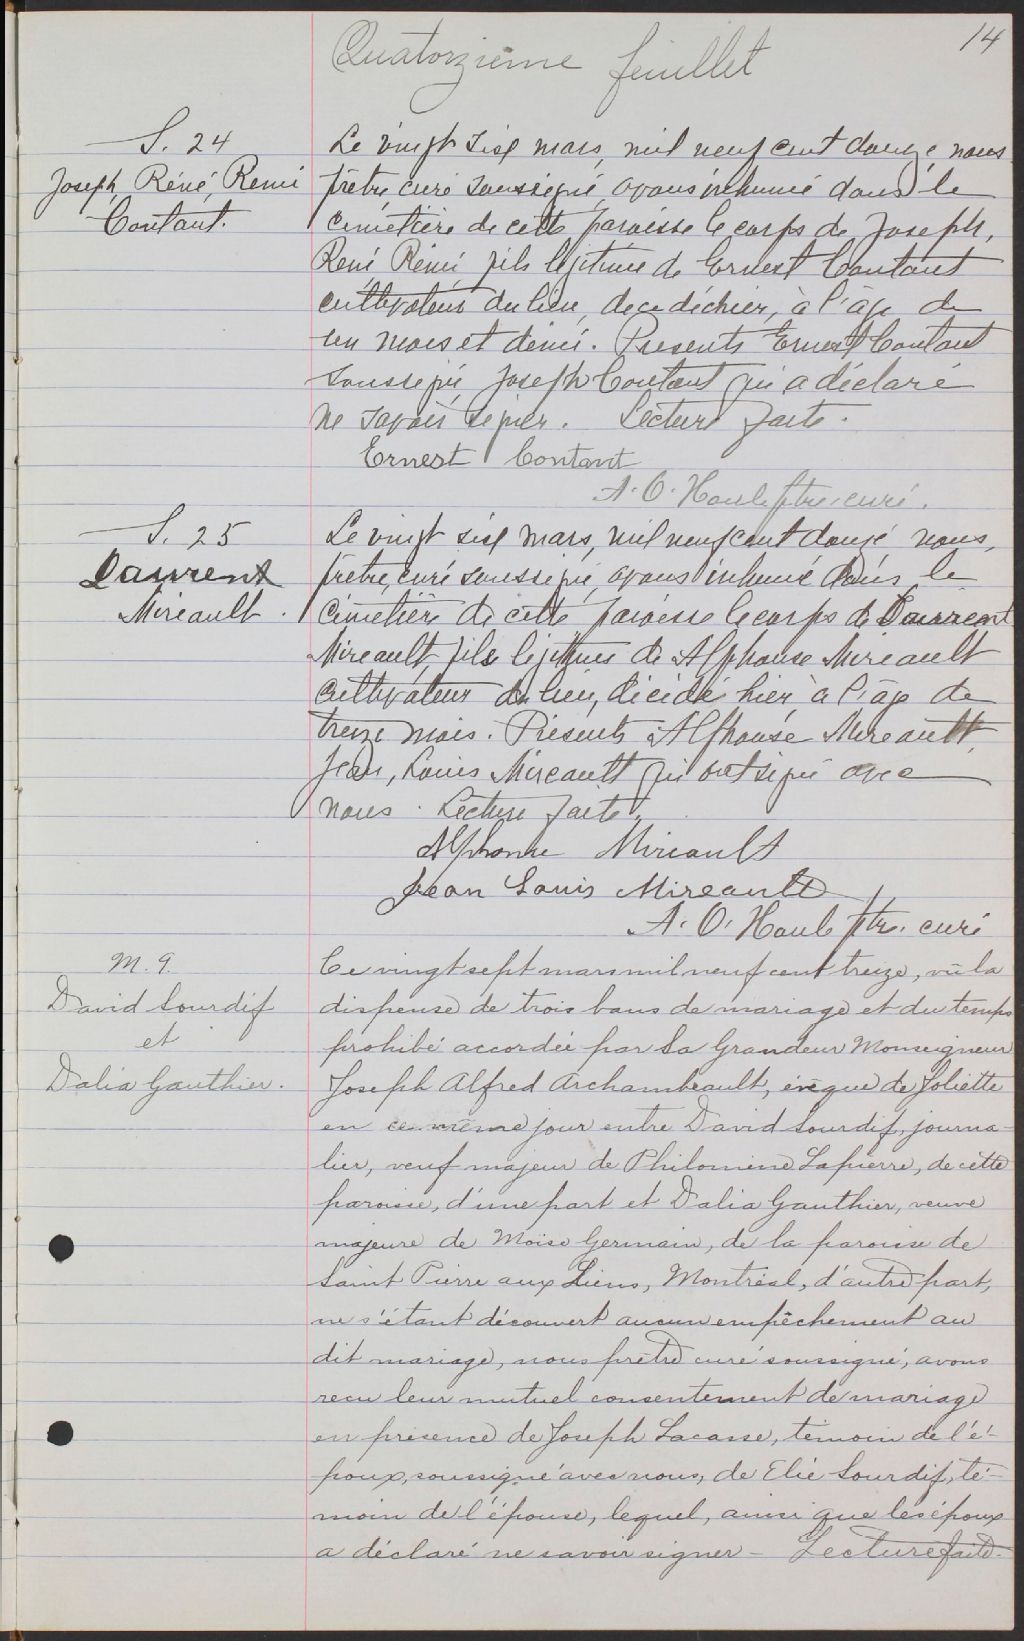 14
Quatorzième feuillet
S. 24
Joseph, Réné, Remi
Contant.
Le vingt six mars, mil neuf cent douze, nous
prêtre, curé soussigné, avons inhumé dans le
cimetière de cette paroisse le corps de Joseph,
René Rémi fils légitime de Ernest Contant
cultivateur du lieu, décédé hier, à l'âge de
un mois et demi. Présents Ernest Contant
soussigné Joseph Contant qui a déclaré
ne savoir signer. Lecture faite.
Ernest Contant
A. O. Houle ptre. curé.
S. 25
Laurent
Miréault.
Le vingt six mars, mil neuf cent douze, nous,
prêtre, curé soussigné, avons inhumé dans le
cimetière de cette paroisse le corps de Laurrent
Mireault, fils légitime de Alphonse Mireault
cultivateur du lieu, décédé hier, à l'âge de
treize mois. Présents Alphonse Mireault,
Jean, Louis Mireault qui ont signé avec
nous. Lecture faite.
Alphonse Mireault
Jean Louis Mireault
A. O. Houle ptre. curé
M. 9.
David Sourdif
et
Dalia Gauthier.
Ce vingt sept mars mil neuf cent treize, vû la
dispense de trois bans de mariage et du temps
prohibé accordée par Sa Grandeur Monseigneur
Joseph Alfred Archambeault, évêque de Joliette
en ce même jour entre David Sourdif, journa-
lier, veuf majeur de Philomène Lapierre, de cette
paroisse, d'une part et Dalia Gauthier, veuve
majeure de Moïse Germain, de la paroisse de
Saint Pierre aux Liens, Montréal, d'autre part,
ne s'étant découvert aucun empêchement au
dit mariage, nous prêtre curé soussigné, avons
recu leur mutuel consentement de mariage
en présence de Joseph Lacasse, témoin de l'é-
poux, soussigné avec nous, de Elie Sourdif, té-
moin de l'épouse, lequel, ainsi que les époux
a déclaré ne savoir signer - Lecture faite.